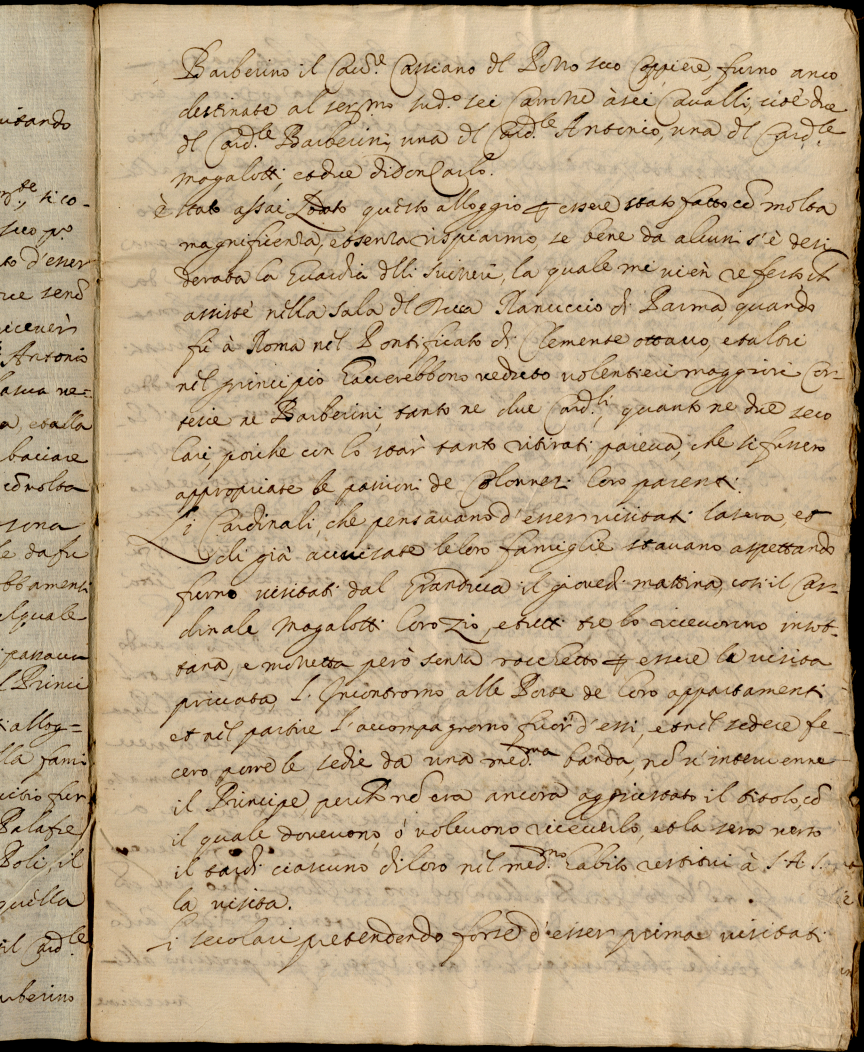 uitando
ti co-
seco p.o
to d'esser
rice send
ricever
Antonio
a, et alla
baciare
cõ molta
le da fu
ttamenti
il quale
passaua
l Princi
alleg=
lla fami
Palafre
Poli, il
quella
il Card.le
arberino
Barberino il Cau.re Cassiano del Pozzo suo Coppiere, furno anco
destinate al ser.mo sud.o sei Carozze à sei Caualli, cioè due
del Card.le Barberini, una del Card.le Antonio, una del Card.le
Magalotti, et due di Don Carlo.
È stato assai lodato questo alloggio p essere stato fatto cõ molta
magnificenza, et senza risparmio, se bene da alcuni s'è desi
derata la Guardia delli Suizzeri, la quale mi uien referto ch
assistè nella sala del Duca Ranuccio di Parma, quando
fù à Roma nel Pontificato di Clemente ottauo, et altri
nel principio hauerebbono ueduto uolentieri maggiori Cor-
tesie ne Barberini, tanto ne due Card.li, quanto ne due seco
lari, poiche con lo star tanto ritirati, pareua, che si fussero
appropriate le passioni de Colonnesi loro parenti.
Li Cardinali, che pensauano d'esser uisitati la sera, et
di già auuisate le loro famiglie stauano aspettando
furno uisitati dal Granduca il giouedì mattina, così il Car-
dinale Magalotti loro Zio, et tutti tre lo riceuerno in sot-
tana, e mozzetta però senza rocchetto p essere la uisita
priuata, l'incontrorno alle Porte de loro appartamenti
et nel partire l'accompagnorno fuor d'essi, et nel sedere fe-
cero porre le sedie da una med.ma banda, nõ u'interuenne
il Principe perche nõ era ancora aggiustato il titolo, cõ
il quale doueuono, ò uoleuono riceuerlo, et la sera uerso
il tardi ciascuno di loro nel med.mo habito restituì à S. A. S.
la uisita.
Li secolari pretendendo forse d'esser prima uisitati